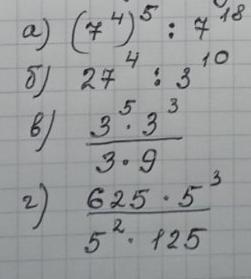 а) (7⁴)⁵ : 7¹⁸
б) 27⁴ : 3¹⁰
в) 3⁵ · 3³
3 · 9
г) 625 · 5³
5² · 125